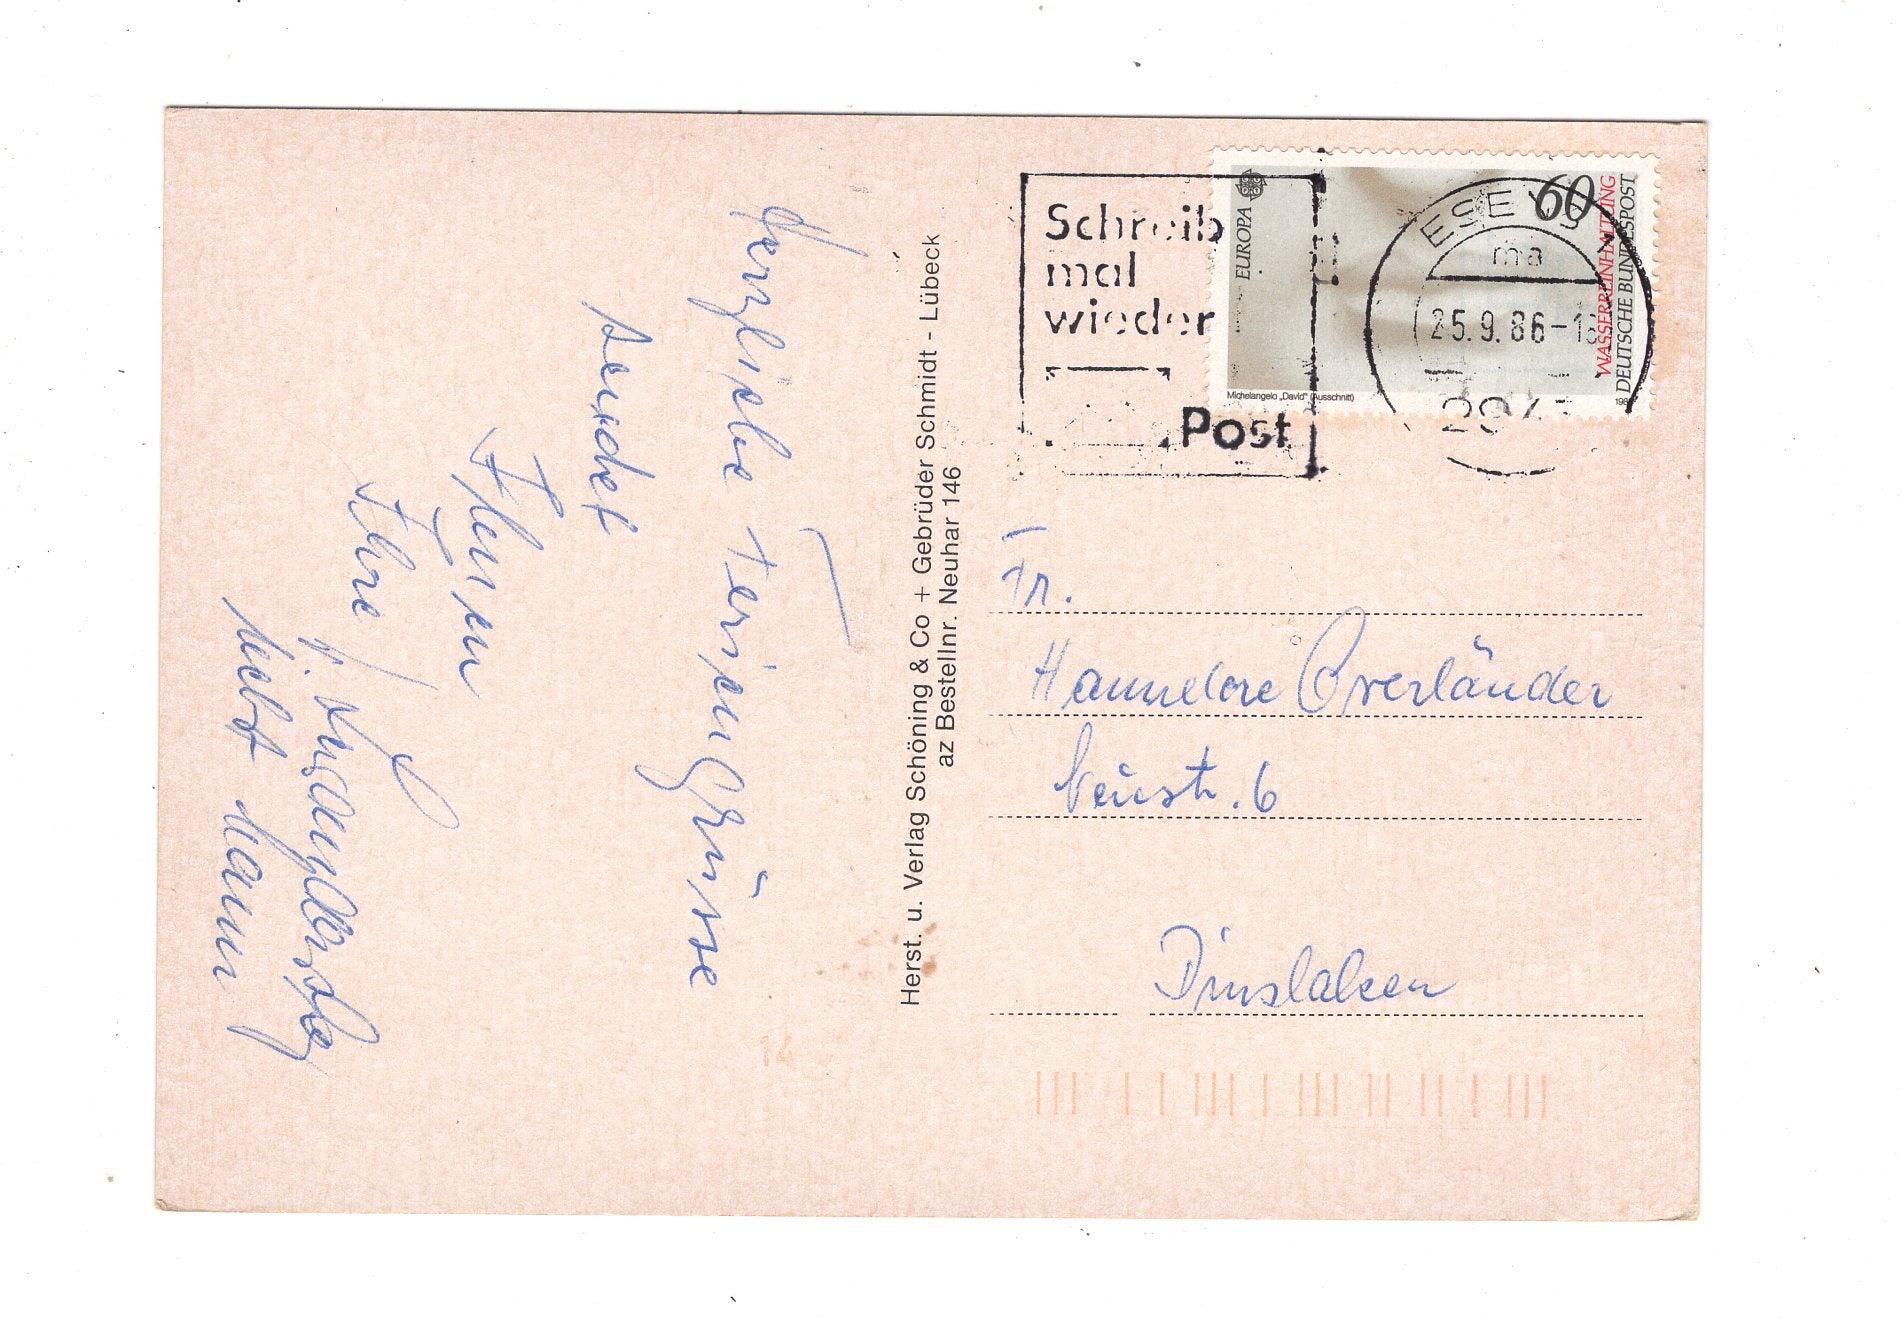 Herzliche Feriengrüsse
sendet
Ihnen
Ihre
nebst Mann
Herst. u. Verlag Schöning & Co + Gebrüder Schmidt - Lübeck
az Bestellnr. Neuhar 146
Schreib
mal
wieder
Post
EUROPA
60
WASSERREINHALTUNG
DEUTSCHE BUNDESPOST
Michelangelo „David“ (Ausschnitt)
ESENS
ma
25.9.86-1
Fr.
Hannelore Overländer
Neustr. 6
Dinslaken
14